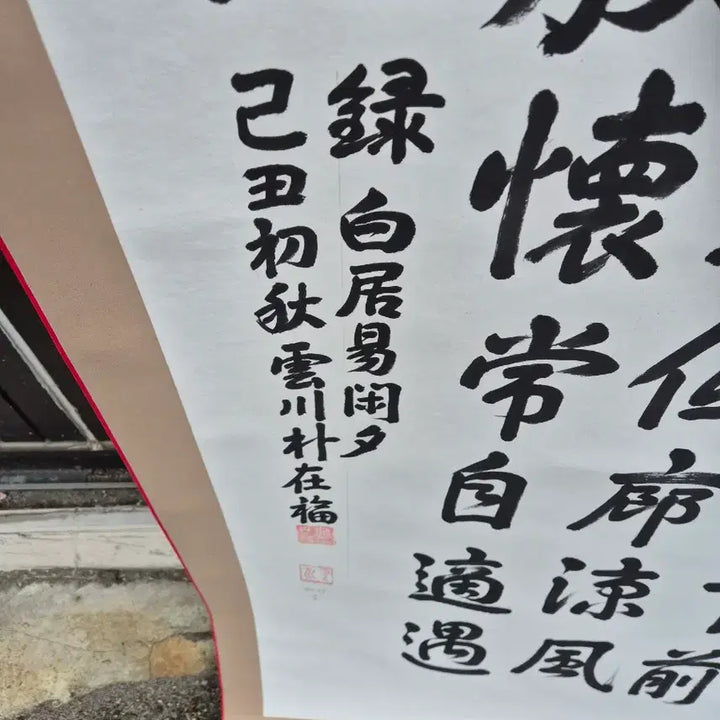 前
低廊涼風
懷常自適遇
録白居易閑夕
己丑初秋雲川朴在福